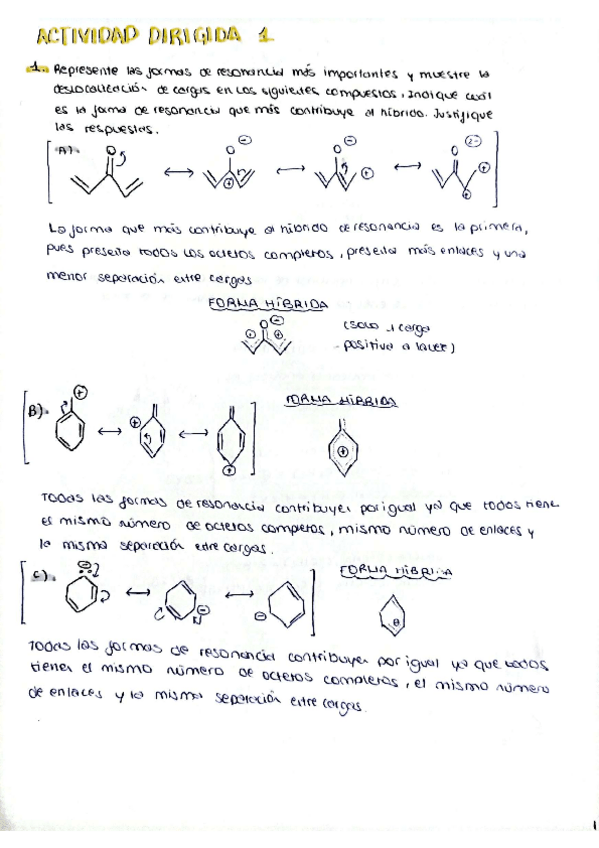 ACTIVIDAD DIRIGIDA 1
1.- Represente las formas de resonancia más importantes y muestre la
deslocalización de cargas en los siguientes compuestos. Indique cuál
es la forma de resonancia que más contribuye al híbrido. Justifique
las respuestas.
A)-
La forma que más contribuye al híbrido de resonancia es la primera,
pues presenta todos los octetos completos, presenta más enlaces y una
menor separación entre cargas
FORMA HÍBRIDA
(solo 1 carga
positiva a la vez)
B)-
FORMA HÍBRIDA
Todas las formas de resonancia contribuyen por igual ya que todos tienen
el mismo número de octetos completos, mismo número de enlaces y
la misma separación entre cargas.
C)-
FORMA HÍBRIDA
Todas las formas de resonancia contribuyen por igual ya que todos
tienen el mismo número de octetos completos, el mismo número
de enlaces y la misma separación entre cargas.
1